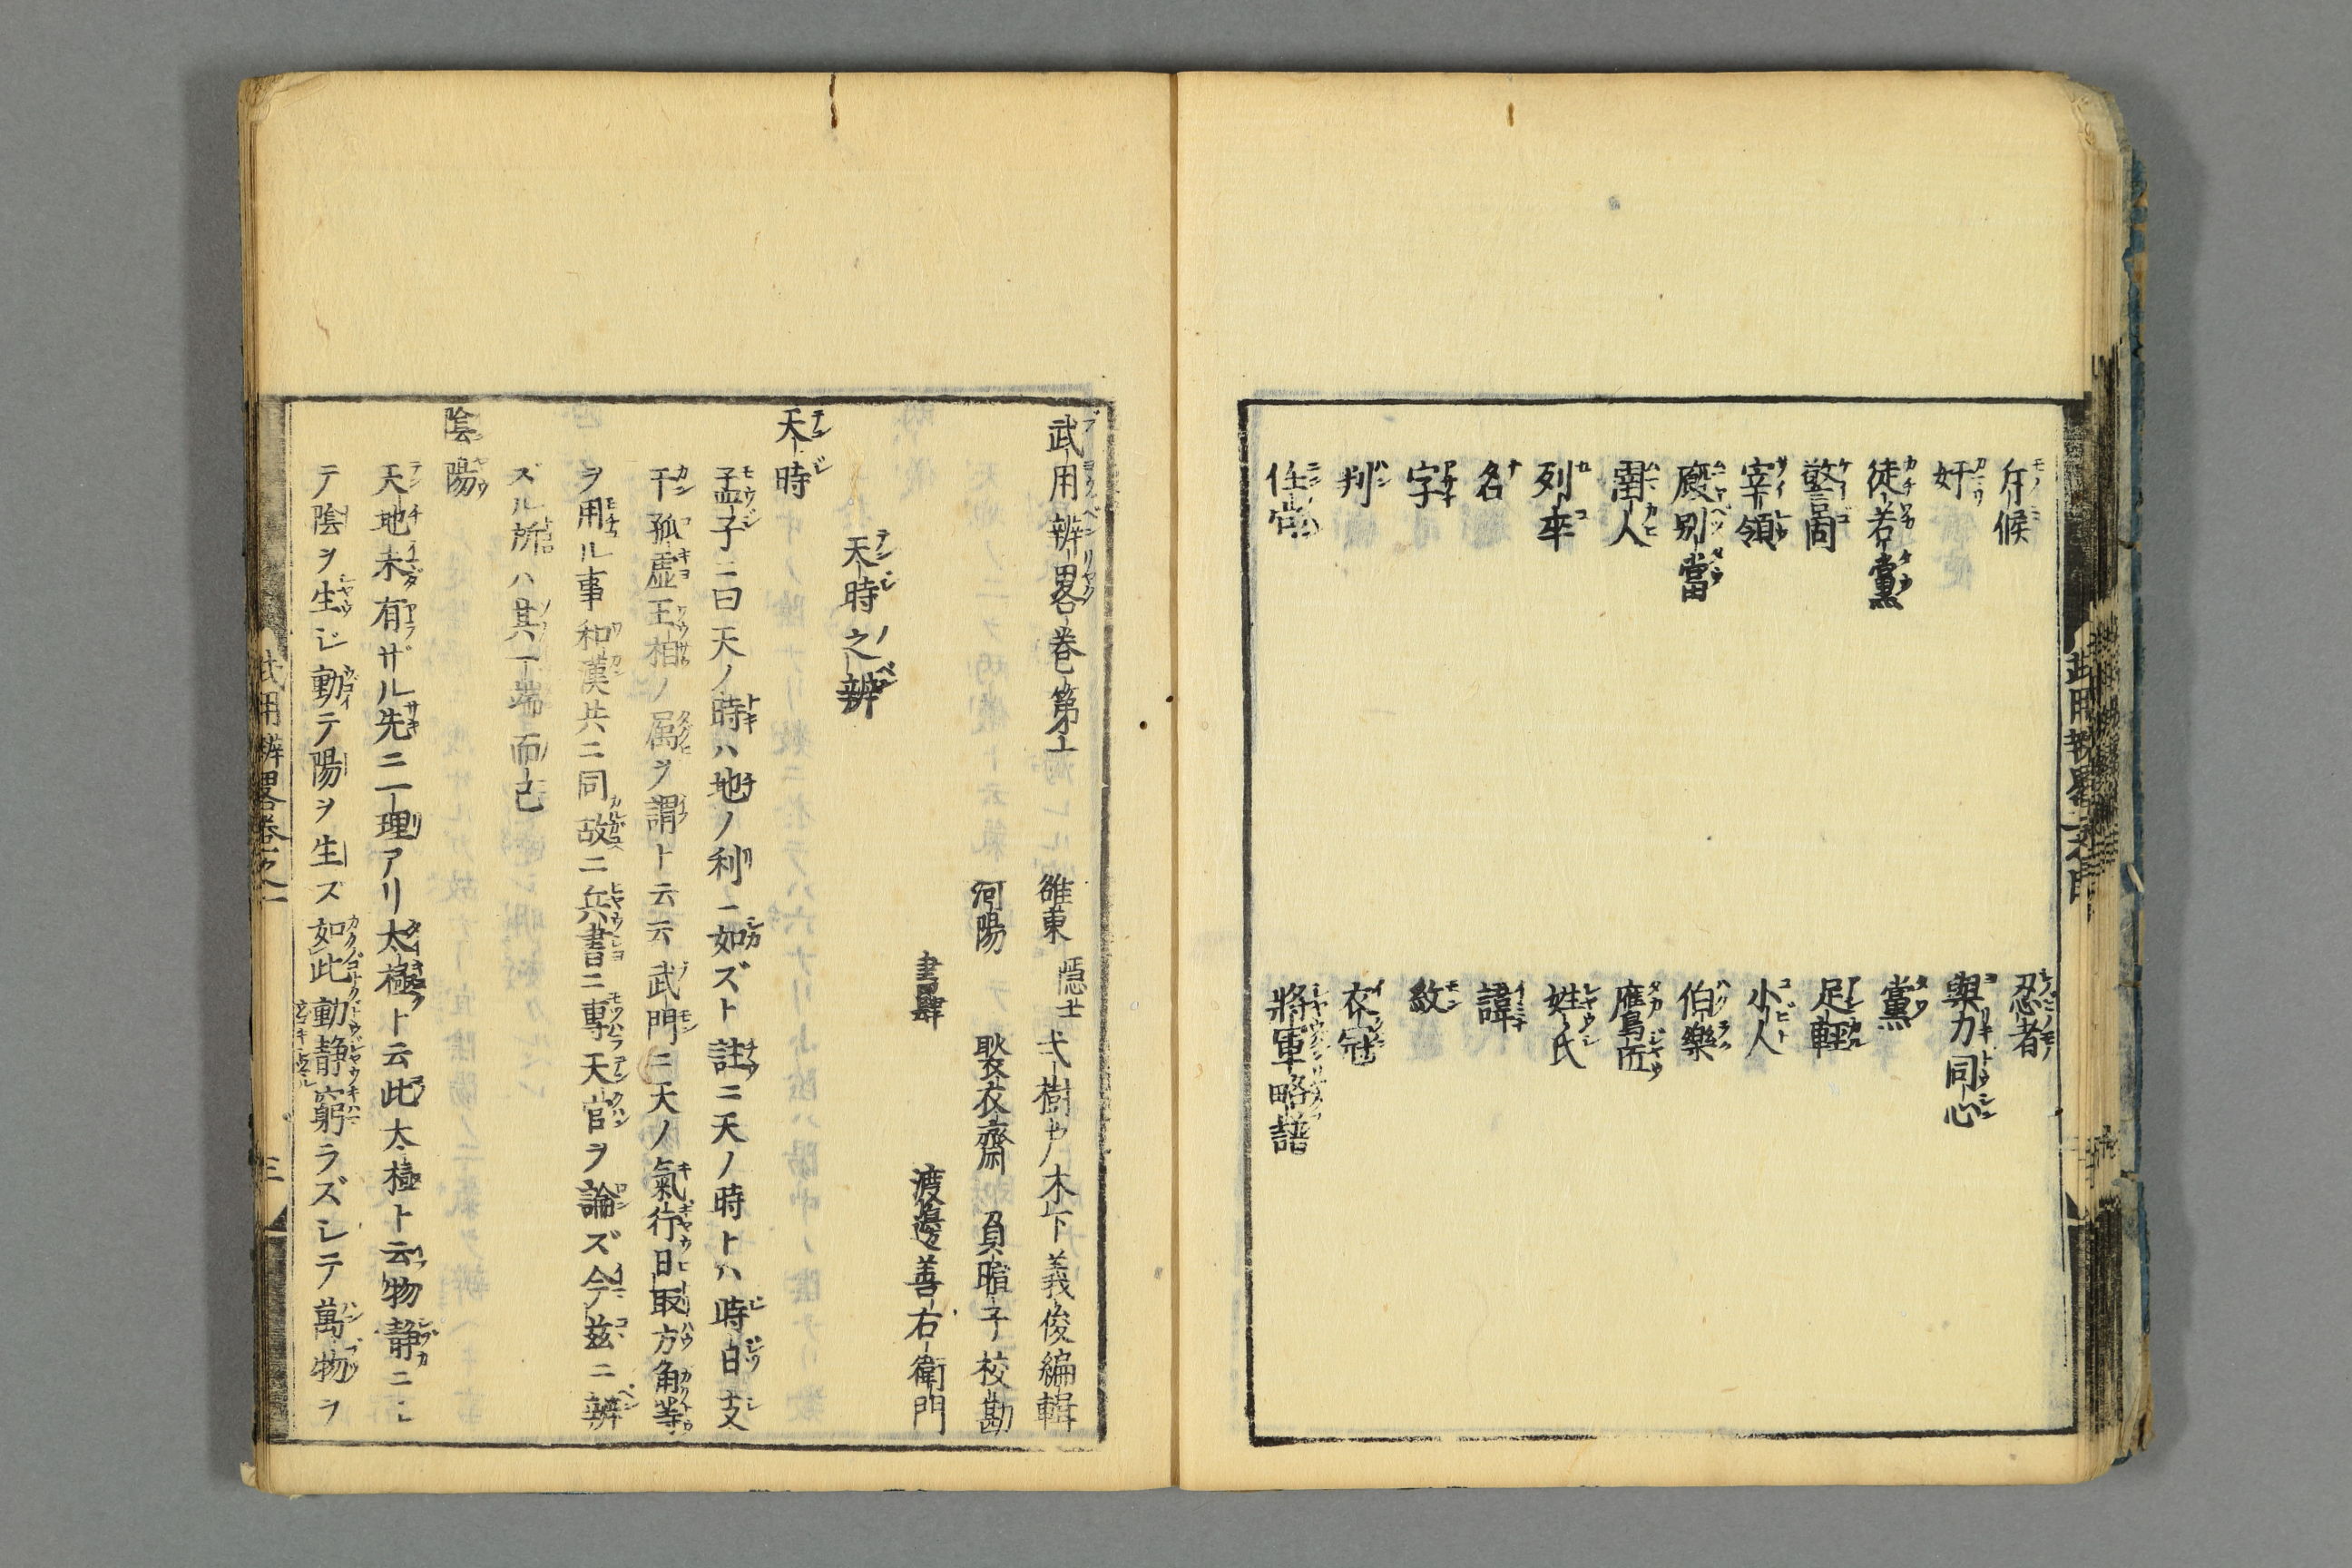 斥候
奸
徒若黨
警固
宰領
廐別當
圉人
列卒
名
字
判
任官
忍者
與力同心
黨
足輕
小人
伯樂
鷹匠
姓氏
諱
紋
衣冠
將軍略譜
武用辨畧巻第一
雒東 隠士 弌樹軒木下義俊編輯
河陽 耿衣齋 負暄子校勘
書肆 渡邊善右衛門
天時之辨
天時
孟子ニ曰天ノ時ハ地ノ利ニ如ズト註ニ天ノ時トハ時日支
干孤虚王相ノ属ヲ謂ト云云武門ニ天ノ氣行日取方角等
ヲ用ル事和漢共ニ同故ニ兵書ニ專天官ヲ論ズ今茲ニ辨
ズル所ハ其一端而已
陰陽
天地未有ザル先ニ一理アリ太極ト云此太極ト云物静ニシ
テ陰ヲ生ジ動テ陽ヲ生ズ如此動静窮ラズシテ萬物ヲ
武用辨畧巻之一
三